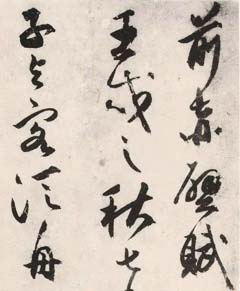 前赤壁賦
壬戌之秋七
子與客泛舟